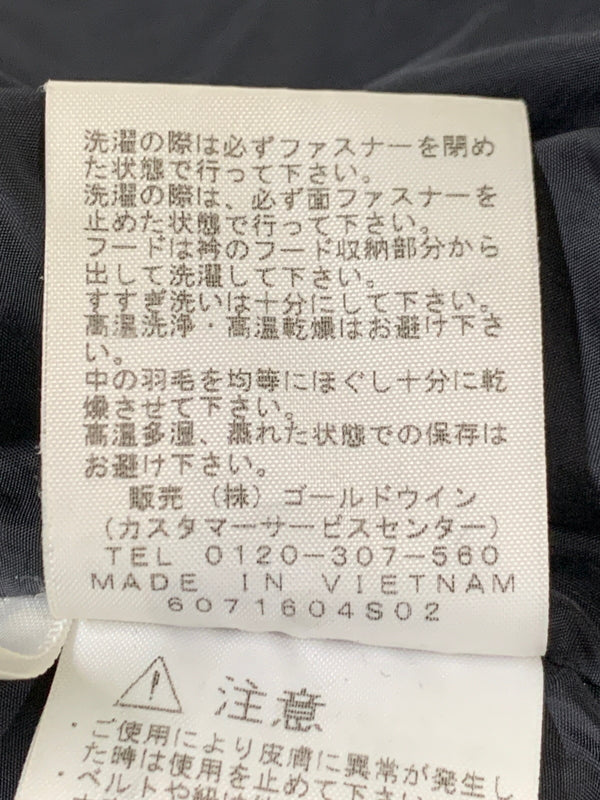 洗濯の際は必ずファスナーを閉め
た状態で行って下さい。
洗濯の際は、必ず面ファスナーを
止めた状態で行って下さい。
フードは衿のフード収納部分から
出して洗濯して下さい。
すすぎ洗いは十分にして下さい。
高温洗浄・高温乾燥はお避け下さ
い。
中の羽毛を均等にほぐし十分に乾
燥させて下さい。
高温多湿、蒸れた状態での保存は
お避け下さい。
販売 (株) ゴールドウイン
(カスタマーサービスセンター)
TEL 0120-307-560
MADE IN VIETNAM
6071604S02
注意
・ご使用により皮膚に異常が発生し
た時は使用を止めて下さ
・ベルトや紐は